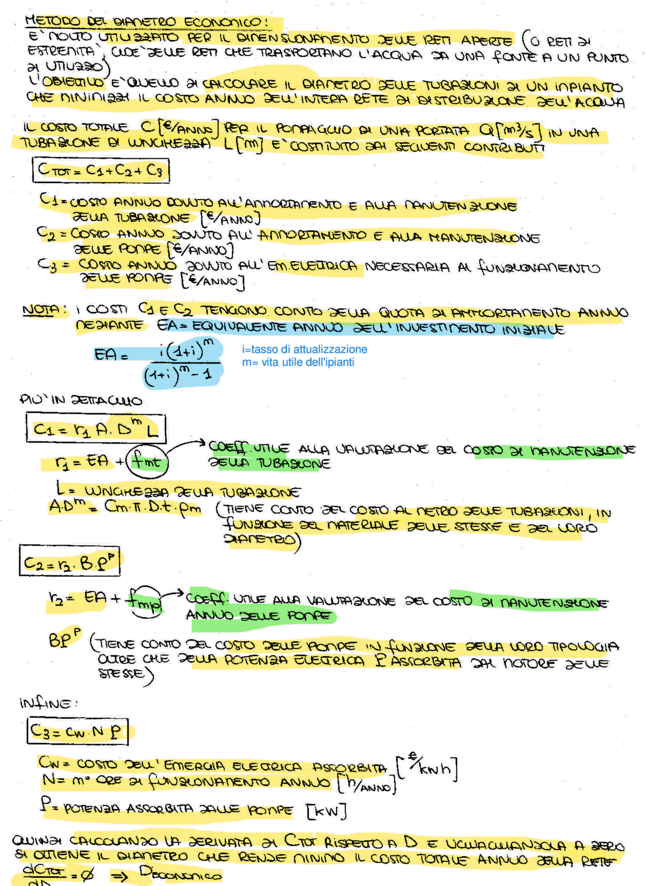 METODO DEL DIAMETRO ECONOMICO:
E' MOLTO UTILIZZATO PER IL DIMENSIONAMENTO DELLE RETI APERTE (O RETI DI
ESTREMITA', CIOE' DELLE RETI CHE TRASPORTANO L'ACQUA DA UNA FONTE A UN PUNTO
DI UTILIZZO)
L'OBIETTIVO E' QUELLO DI CALCOLARE IL DIAMETRO DELLE TUBAZIONI DI UN IMPIANTO
CHE MINIMIZZI IL COSTO ANNUO DELL'INTERA RETE DI DISTRIBUZIONE DELL'ACQUA
IL COSTO TOTALE C [€/ANNO] PER IL POMPAGGIO DI UNA PORTATA Q [m³/s] IN UNA
TUBAZIONE DI LUNGHEZZA L [m] E' COSTITUITO DAI SEGUENTI CONTRIBUTI
CTOT = C1 + C2 + C3
C1 = COSTO ANNUO DOVUTO ALL'AMMORTAMENTO E ALLA MANUTENZIONE
DELLA TUBAZIONE [€/ANNO]
C2 = COSTO ANNUO DOVUTO ALL'AMMORTAMENTO E ALLA MANUTENZIONE
DELLE POMPE [€/ANNO]
C3 = COSTO ANNUO DOVUTO ALL'EN.ELETTRICA NECESSARIA AL FUNZIONAMENTO
DELLE POMPE [€/ANNO]
NOTA: I COSTI C1 E C2 TENGONO CONTO DELLA QUOTA DI AMMORTAMENTO ANNUO
MEDIANTE EA= EQUIVALENTE ANNUO DELL'INVESTIMENTO INIZIALE
EA = i(1+i)^m / (1+i)^m - 1
i=tasso di attualizzazione
m= vita utile dell'ipianti
PIU' IN DETTAGLIO
C1 = r1 A. D^m L
r1 = EA + fmt → COEFF. UTILE ALLA VALUTAZIONE DEL COSTO DI MANUTENZIONE
DELLA TUBAZIONE
L = LUNGHEZZA DELLA TUBAZIONE
A.D^m = Cm.π.D.t.ρm (TIENE CONTO DEL COSTO AL METRO DELLE TUBAZIONI, IN
FUNZIONE DEL MATERIALE DELLE STESSE E DEL LORO
DIAMETRO)
C2 = r2. B.P^P
r2 = EA + fmp → COEFF. UTILE ALLA VALUTAZIONE DEL COSTO DI MANUTENZIONE
ANNUO DELLE POMPE
BP^P (TIENE CONTO DEL COSTO DELLE POMPE IN FUNZIONE DELLA LORO TIPOLOGIA
OLTRE CHE DELLA POTENZA ELETTRICA P ASSORBITA DAL MOTORE DELLE
STESSE)
INFINE:
C3 = CW. N P
CW = COSTO DELL'ENERGIA ELETTRICA ASSORBITA [€/kWh]
N = n° ORE DI FUNZIONAMENTO ANNUO [h/ANNO]
P = POTENZA ASSORBITA DALLE POMPE [kW]
QUINDI CALCOLANDO LA DERIVATA DI CTOT RISPETTO A D E UGUAGLIANDOLA A ZERO
SI OTTIENE IL DIAMETRO CHE RENDE MINIMO IL COSTO TOTALE ANNUO DELLA RETE
dCTOT/dD = ∅ ⇒ DECONOMICO